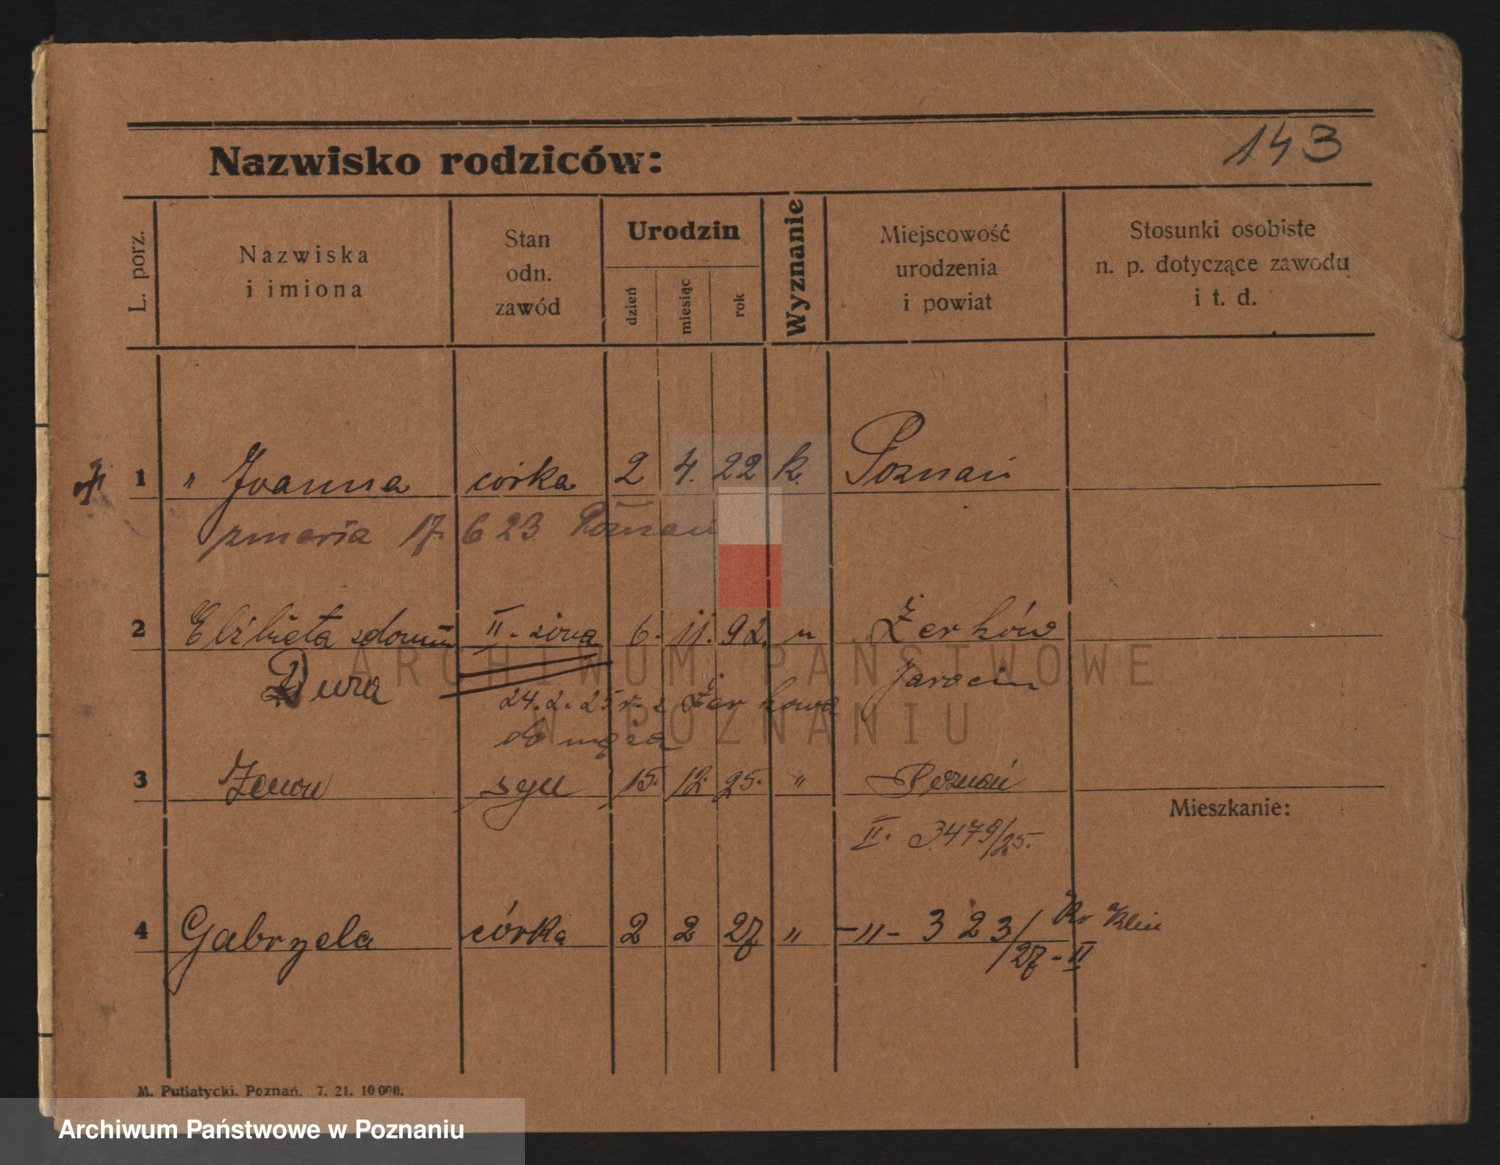 143
Nazwisko rodziców:
L. porz.
Nazwiska
i imiona
Stan
odn.
zawód
Urodzin
dzień
miesiąc
rok
Wyznanie
Miejscowość
urodzenia
i powiat
Stosunki osobiste
n. p. dotyczące zawodu
i t. d.
1 " Joanna córka 2 4. 22 k. Poznań
zmarła 17. 6 23 Poznań
2 Elżbieta zdomu II. żona 6. 11. 92. " Żerków
Dura Jarocin
24. 2. 25 r. z Żerkowa
do męża
3 Zenon syn 15. 12. 25. " Poznań
Mieszkanie:
II. 3479/25.
4 Gabryela córka 2 2 27 " -"- 323/
/27-II
M. Putiatycki. Poznań. 7. 21. 10 000.
ARCHIWUM PAŃSTWOWE
W POZNANIU
Archiwum Państwowe w Poznaniu